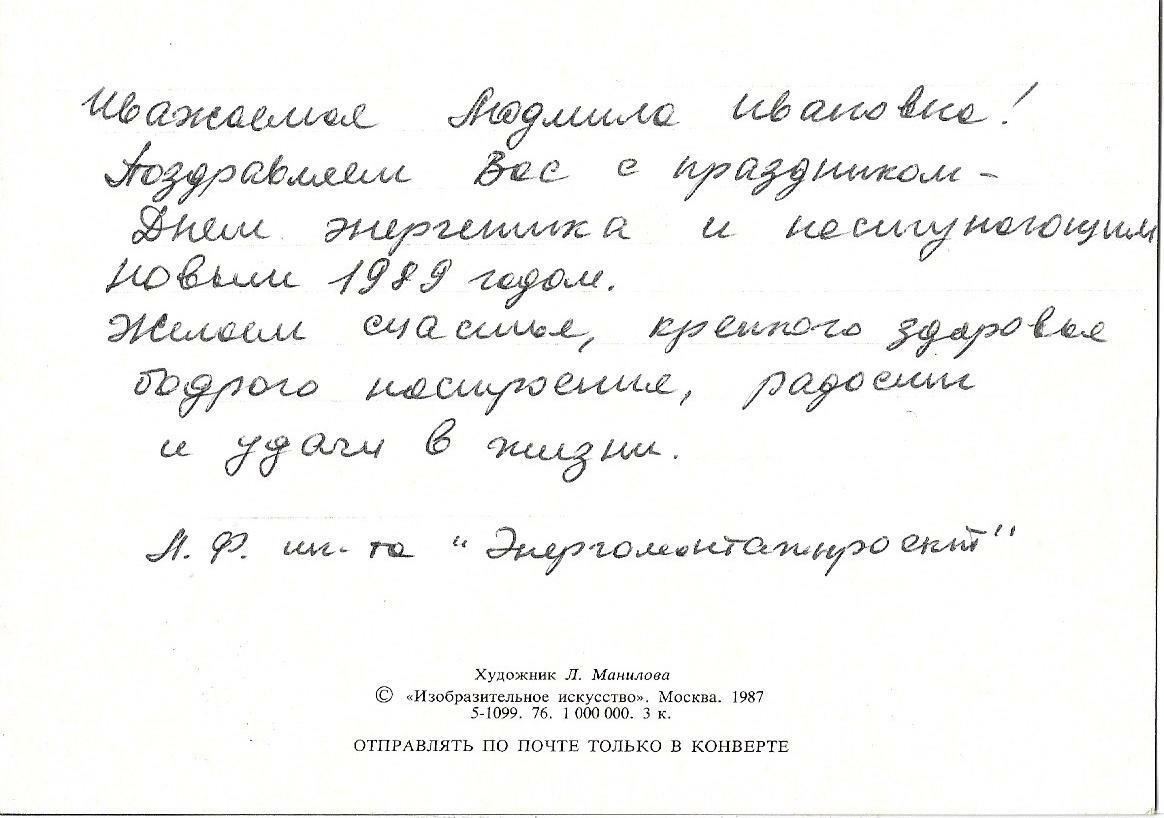 Уважаемая Людмила Ивановна!
Поздравляем Вас с праздником –
Днем энергетика и наступающим
новым 1989 годом.
Желаем счастья, крепкого здоровья
бодрого настроения, радости
и удачи в жизни.
Л. Ф. ин-та "Энергомонтажпроект"
Художник Л. Манилова
© «Изобразительное искусство». Москва. 1987
5-1099. 76. 1 000 000. 3 к.
ОТПРАВЛЯТЬ ПО ПОЧТЕ ТОЛЬКО В КОНВЕРТЕ